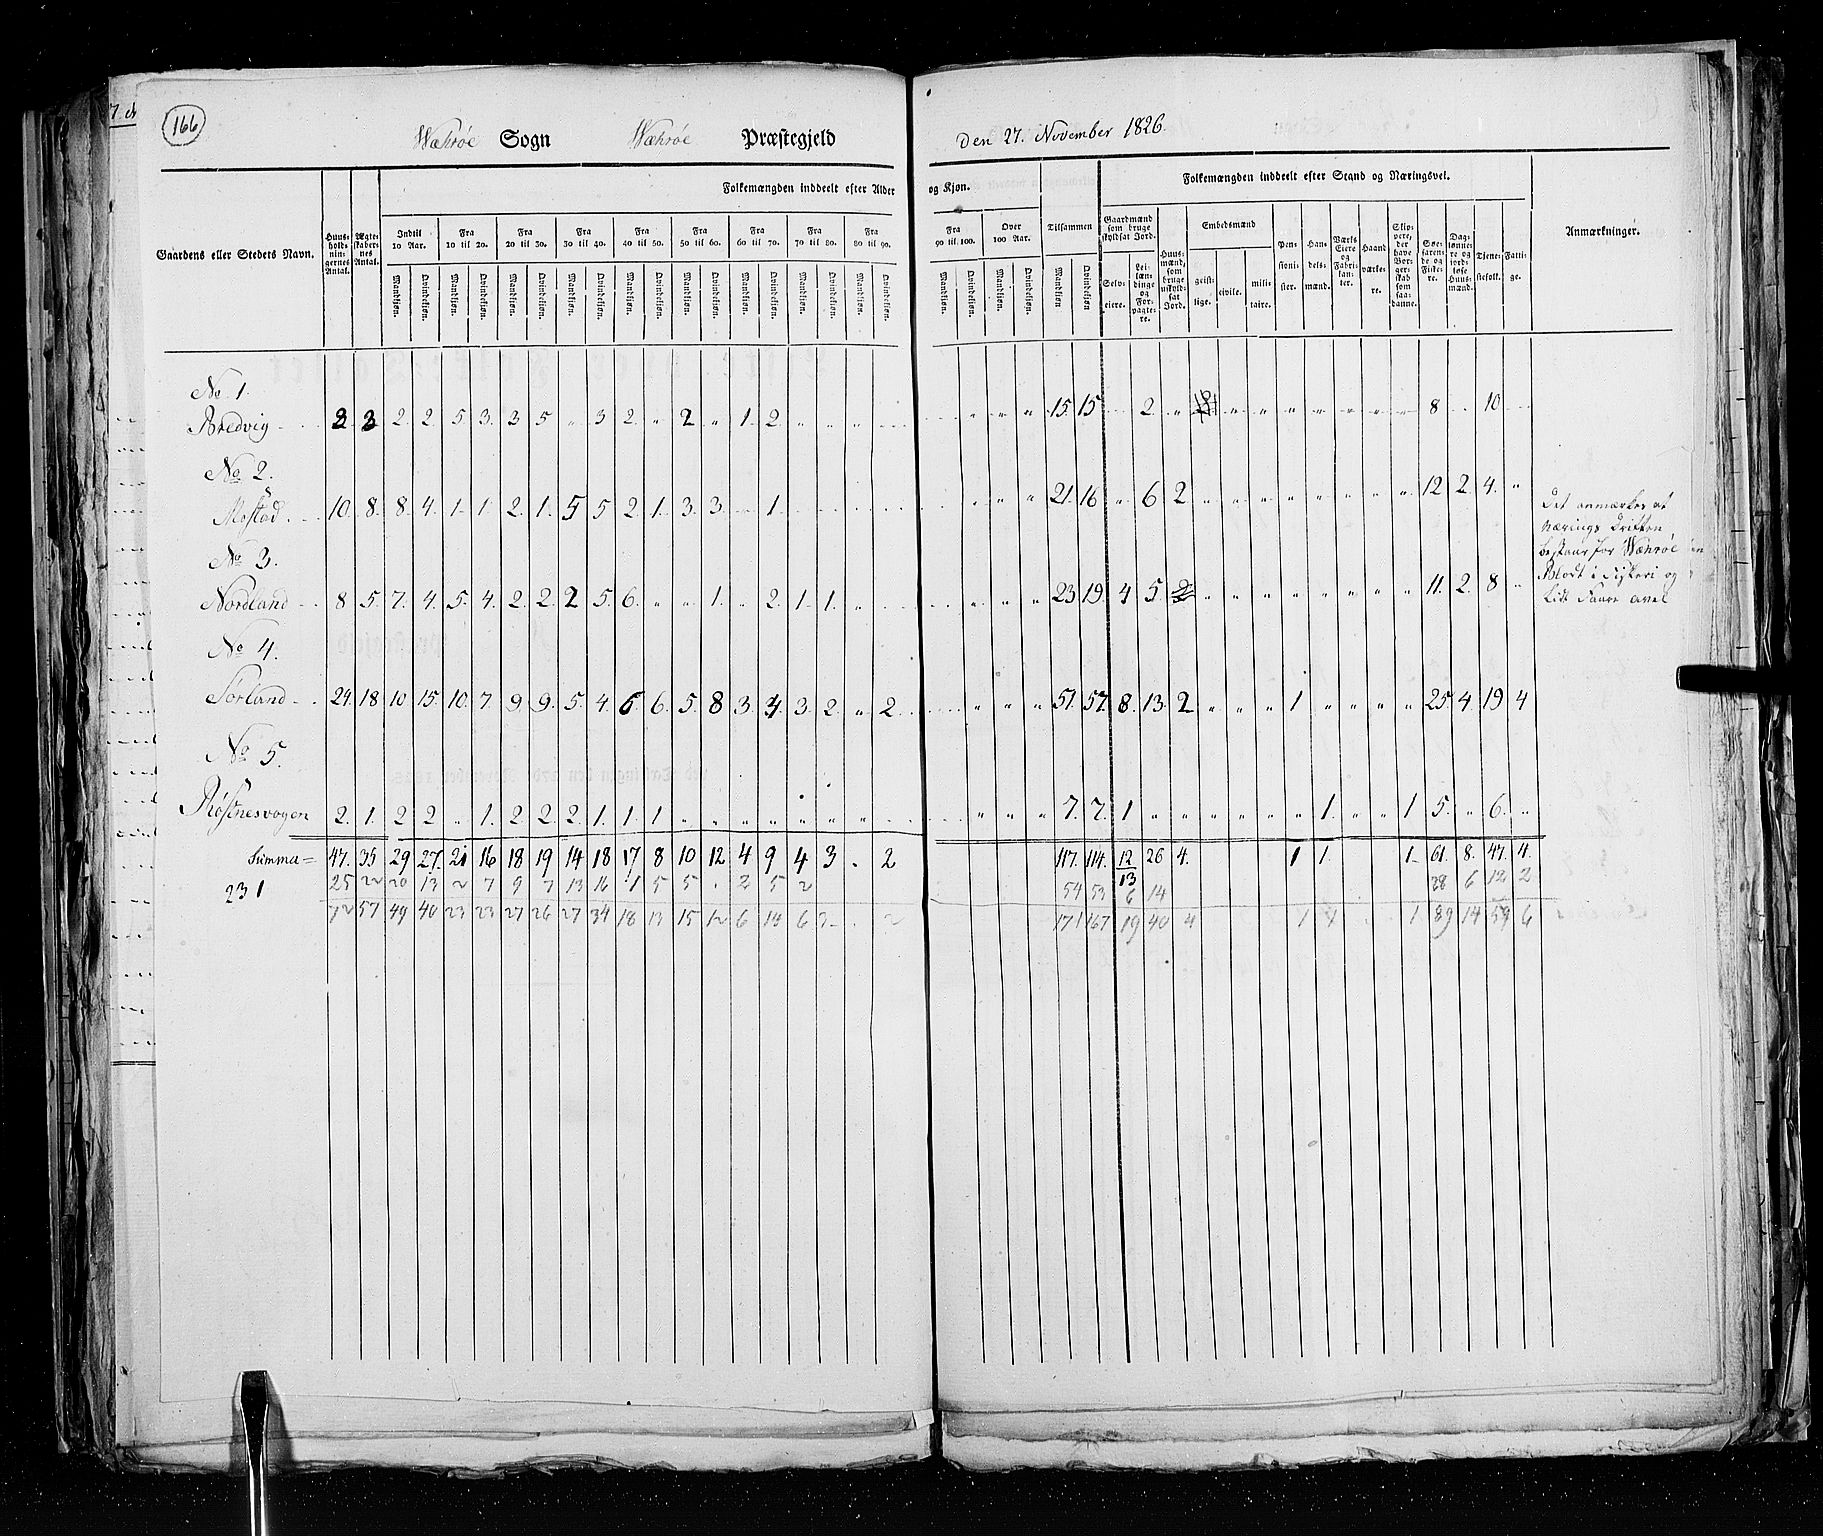 166
Wæhrøe Sogn Wæhrøe Præstegjeld
Den 27. November 1826.
Gaardens eller Steders Navn.
Huus-holdnin-gernes Antal.
Ægte-skaber-nes Antal.
Folkemængden inddeelt efter Alder og Kjøn.
Indtil 10 Aar. Fra 10 til 20. Fra 20 til 30. Fra 30 til 40. Fra 40 til 50. Fra 50 til 60. Fra 60 til 70. Fra 70 til 80. Fra 80 til 90. Fra 90 til 100. Over 100 Aar. Tilsammen
Mandkjøn. Qvindekjøn.
Folkemængden inddeelt efter Stand og Næringsvei.
Gaardmænd som bruge skyldsat Jord.
Selv-eiere. Lei-læn-dinge og For-pagte-re.
Huus-mænd, som bruge uskyld-sat Jord.
Embedsmænd
geist-lige. civile. mili-taire.
Pen-sioni-ster. Han-dels-mænd. Værks Eiere og Fabri-kan-ter. Haand værke-re. Skip-pere, der have Bor-ger-skab som saa-danne. Søe-farende og Fiske-re. Dag-lønne-re og jord-løse Huus-mænd. Tjene-stefolk. Fatti-ge.
Anmærkninger.
No 1.
Bredvig 2 2 5 3. 3 5 „ 3 2. „ 2 „ 1 2 15. 15 2 8 10
No 2.
Mostad. 10. 8. 8. 4. 1. 1. 2. 1. 5 5 2 1. 3. 3. 1. 21. 16 „ 6 2 12 2. 4. „
No 3.
Nordland 8 5. 7. 4. 5. 4. 2. 2. 2 5. 6. „ „ 1. „ 2. 1. 1. 23 19. 4 5. 11. 2. 8 „
No 4.
Sørland 24. 18 10 15. 10. 7. 9 9. 5. 4. 6. 6. 5. 8 3. 3. 2. „ 2. 51. 57. 8. 13. 2 1 25. 4. 19 4
No 5.
Røstnesvogen 2. 1. 2 2 „ 1. 2 2. 2. 1. 1. 1 7. 7. 1 1. 1 5. „ 6. „
Summa = 47. 35 29 27. 21 16 18 19 14 18 17 8 10 12 4 9 4 3 . 2 117. 114. 12 26 4. 1 1. 1. 61. 8. 47. 4.
13
231 25 22 20 13 2 7 9 7 13 16 1 5 5 . 2 5 2 54 53 6 14 28 6 12 2
72 57 49 40 23 23 27 26 27 34 18 13 15 12 6 14 6 3 2 171 167 19 40 4 1 1 1 89 14 59 6
Det anmærkes at
Nærings Driften
bestaar for Wæhrøe
Blodt i Fiskeri og
Lidt Faare avel